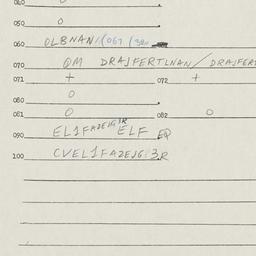 040
050 0
060 OLBNAN/(061
070 QM DRAJFERTLNAN/DRAJFERT
071 + 072 +
080 0
081 0 082 0
090 ELF EQ
100 CVEL1FAZEJG13R